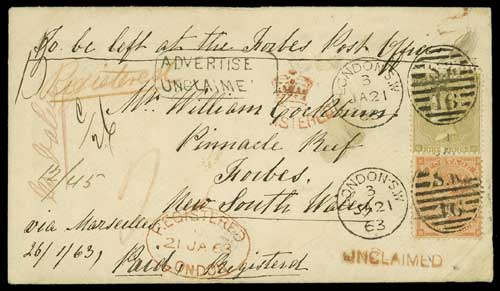 To be left at the Forbes Post Office
Registered
ADVERTISE
UNCLAIME
REGISTERED
LONDON.S.W
3
JA21
S.W.
16
Mr. William Cockburn
Pinnacle Reef
Forbes.
New South Wales
LONDON.S.W
3
JA21
63
S.W.
16
via Marseilles
26/1/63
REGISTERED
21 JA 63
LONDON
Paid, Registered
UNCLAIMED